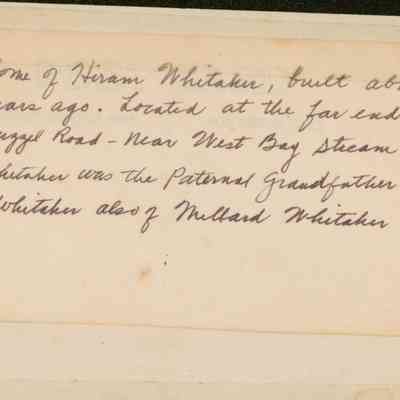 ome of Hiram Whitaker, built ab
ears ago. Located at the far end
uzzel Road - Near West Bay Stream
hitaker was the Paternal Grandfather
Whitaker also of Millard Whitaker